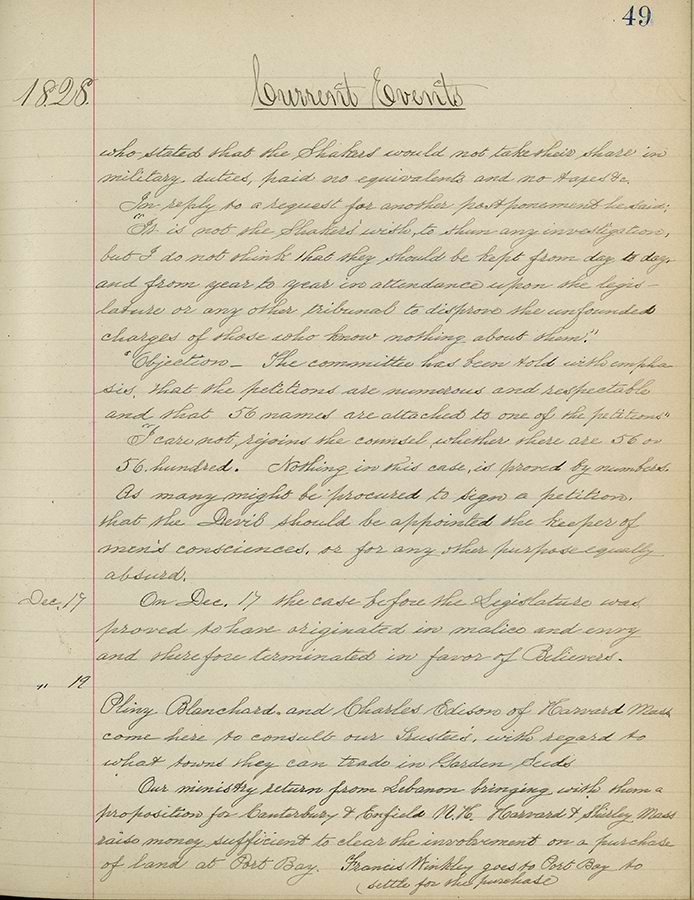 49
1828. Current Events
who stated that the Shakers would not take their share in
military duties, paid no equivalents and no taxes &c.
In reply to a request for another postponement he said;
"It is not the Shakers' wish, to shun any investigation,
but I do not think that they should be kept from day to day
and from year to year in attendance upon the legis-
lature or any other tribunal to disprove the unfounded
charges of those who know nothing about them."
"Objection – The committee has been told with empha
sis, that the petitions are numerous and respectable
and that 56 names are attached to one of the petitions"
"I care not, rejoins the counsel, whether there are 56 or
56 hundred. Nothing in this case, is proved by numbers.
As many might be procured to sign a petition,
that the Devil should be appointed the keeper of
men's consciences, or for any other purpose equally
absurd.
Dec. 17 On Dec. 17 the case before the Legislature was
proved to have originated in malice and envy
and therefore terminated in favor of Believers.
" 19
Pliny Blanchard and Charles Edison of Harvard Mass
come here to consult our Trustees, with regard to
what towns they can trade in Garden Seeds
Our ministry return from Lebanon bringing with them a
proposition for Canterbury & Enfield N.H. Harvard & Shirley Mass
raise money sufficient to clear the involvement on a purchase
of land at Port Bay. Francis Winkley goes to Port Bay to
(settle for the purchase